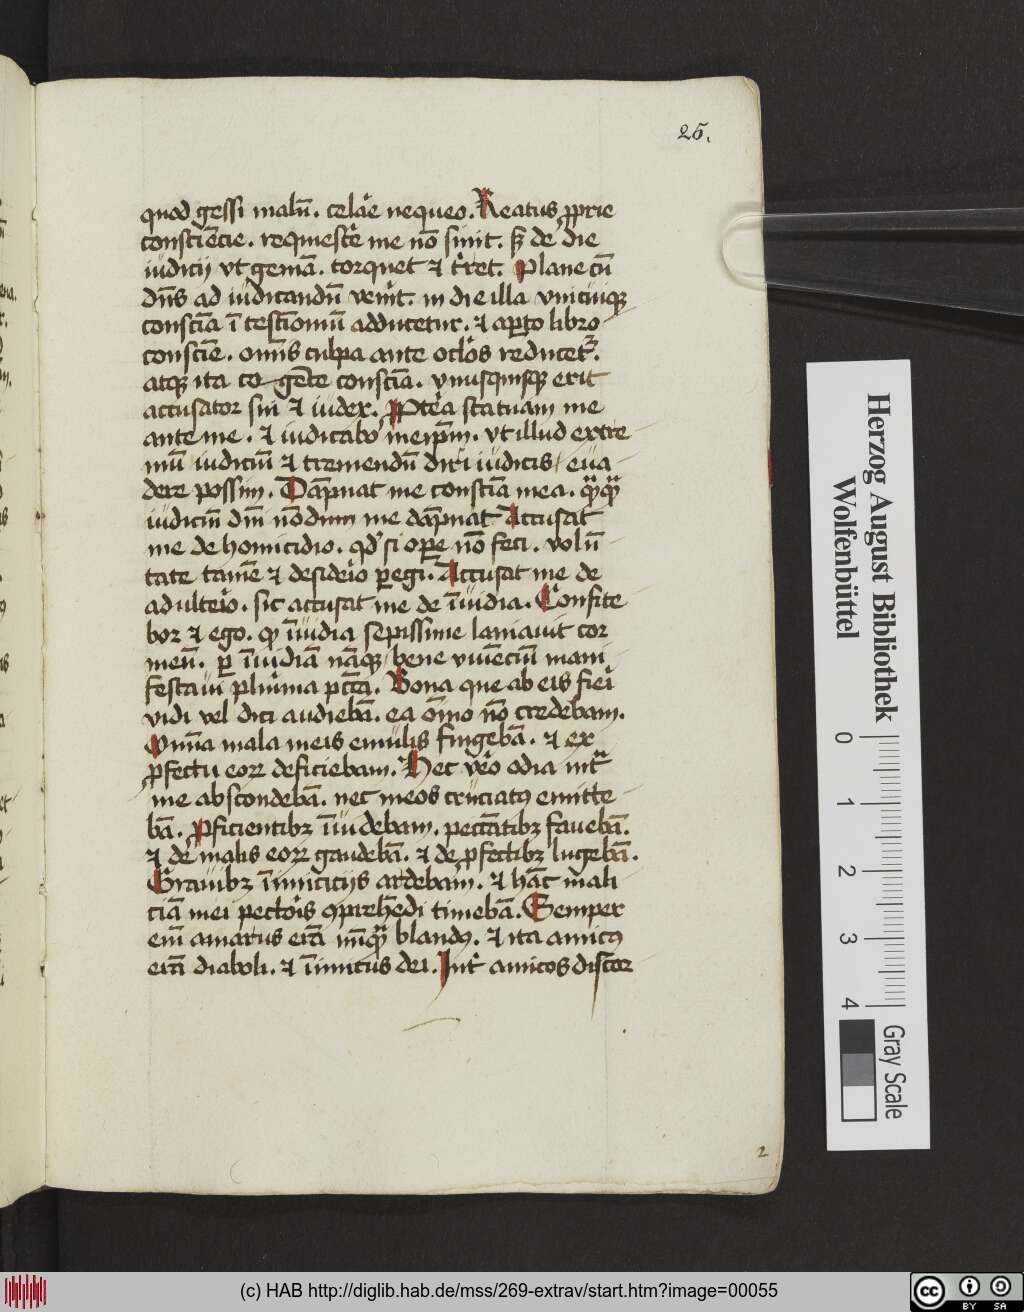 25.
quod gessi malū. celāe nequeo. Reatus ꝓprie
consciēcie. requiescē me nō sinit. sꝫ de die
iudicij vt gemā. torquet ⁊ tret. Plane cū
dn̄s ad iudicandū venit. in die illa vnicuiqꝫ
consciā ī testīoniū adducetur. ⁊ apto libro
consciē. omīs culpa ante oclōs reducetꝛ.
atqꝫ ita cogēte consciā. vnusquisqꝫ erit
accusator sui ⁊ iudex. Ꝓptēa statuam me
ante me. ⁊ iudicabo meip̄m. vt illud extre
mū iudiciū ⁊ tremendū diri iudicis eua
dere possim. Dāpnat me consciā mea. qꝙ
iudiciū dīni nōdum me dāpnat Accusat
me de homicidio. qd' si oꝑe nō feci. volū
tate tamē ⁊ desideīo ꝑegi. Accusat me de
adulteīo. sic accusat me de īuidia. Confite
bor ⁊ ego. qꝫ īuidia sepissime laniauit cor
meū. ꝑ īuidiā nāqꝫ bene viuēciū mani
festaui plurima pctā. Bona que ab eis fieri
vidi vel dici audiebā. ea ōīno nō credebam.
Omīa mala meis emulis fingebā. ⁊ ex
ꝓfectu eoꝝ deficiebam. Hec vēo odia int̄
me abscondebā. nec meos cruciatꝰ emitte
bā. Ꝓficientibꝫ īuidebam. peccātibꝫ fauebā.
⁊ de malis eoꝝ gaudebā. ⁊ de ꝓfectibꝫ lugebā.
Grauibꝫ īimicicijs ardebam. ⁊ hāc mali
ciā mei pectoīs ꝯprehēdi timebā. Semper
eīm amarus erā nūqꝫ blandꝰ. ⁊ ita amicꝰ
erā diaboli. ⁊ īimicus dei. Int̄ amicos discor
2
Herzog August Bibliothek
Wolfenbüttel
0
1
2
3
4
Gray Scale
(c) HAB http://diglib.hab.de/mss/269-extrav/start.htm?image=00055
cc
BY
SA